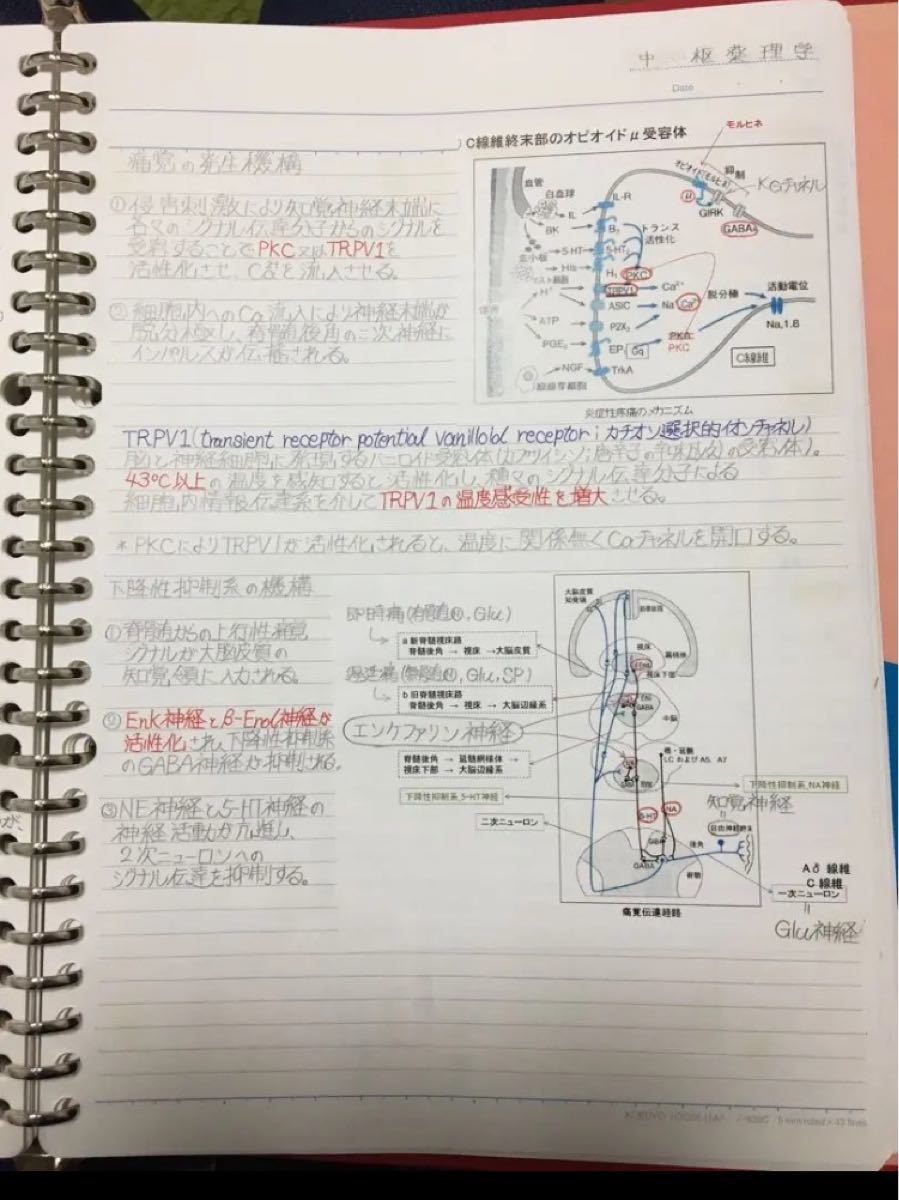 中枢薬理学
Date
痛覚の発生機構
①侵害刺激により知覚神経末端に
各々のシグナル伝達分子からのシグナルを
受容することでPKC又はTRPV1を
活性化させ、Caを流入させる。
②細胞内へのCa流入により神経末端が
脱分極し、脊髄後角の二次神経に
インパルスが伝播される。
C線維終末部のオピオイドμ受容体
モルヒネ
オピオイド(モルヒネ)
抑制
K⊕チャネル
μ
GIRK
GABA
血管
白血球
IL
IL-R
BK
B₂
トランス
活性化
血小板
5-HT
5-HT
His
H₁
PKC
H⁺
TRPV1
Ca²⁺
ASIC
Na
Ca²⁺
脱分極
活動電位
Na,1.8
ATP
P2X₃
PKA
PKC
PGE₂
EP
Gq
C線維
NGF
TrkA
炎症性疼痛のメカニズム
TRPV1(transient receptor potential vanilloid receptor;カチオン選択的イオンチャネル)
脳と神経細胞に発現するバニロイド受容体(カプサイシン;唐辛子の辛味成分の受容体)。
43℃以上の温度を感知すると活性化し、種々のシグナル伝達分子による
細胞内情報伝達系を介してTRPV1の温度感受性を増大させる。
*PKCによりTRPV1が活性化されると、温度に関係無くCaチャネルを開口する。
下降性抑制系の機構
①脊髄からの上行性痛覚
シグナルが大脳皮質の
知覚領に入力される。
②Enk神経とβ-End神経が
活性化され、下降性抑制系
のGABA神経が抑制される。
③NE神経と5-HT神経の
神経活動が亢進し、
2次ニューロンへの
シグナル伝達を抑制する。
即時痛(脊髄, Glu)
a 新脊髄視床路
脊髄後角 → 視床 → 大脳皮質
遅延痛(脊髄, Glu, SP)
b 旧脊髄視床路
脊髄後角 → 視床 → 大脳辺縁系
エンケファリン神経
脊髄後角 → 延髄網様体 →
視床下部 → 大脳辺縁系
下降性抑制系,5-HT神経
二次ニューロン
大脳皮質
知覚領
視床
扁桃体
視床下部
GABA
中脳
橋・延髄
LC および A5、A7
下降性抑制系,NA神経
知覚神経
5-HT
NA
自由神経終末
後角
GABA
脊髄
Aδ線維
C線維
一次ニューロン
=
Glu神経
痛覚伝達経路
6 mm ruled × 43 lines